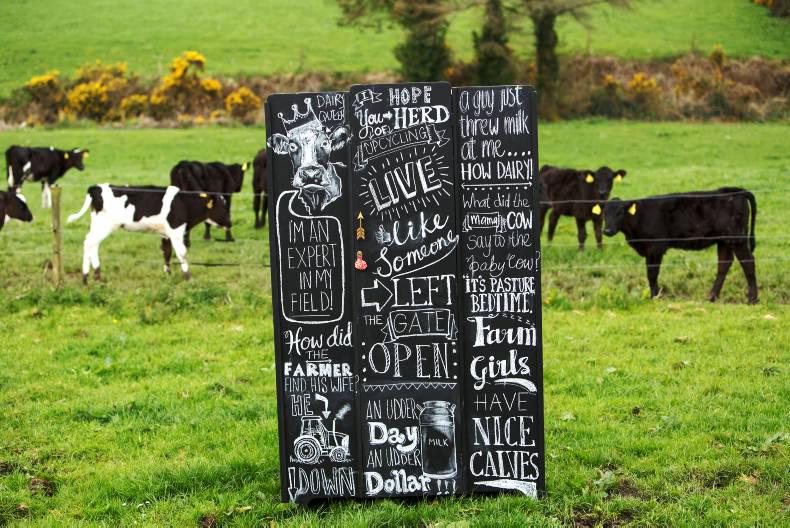 DAIRY
QUEEN
I'M AN
EXPERT
IN MY
FIELD!
How did
THE
FARMER
FIND HIS WIFE?
HE
DOWN
HOPE
You HERD
OF
UPCYCLING
LIVE
Like
Someone
LEFT
THE GATE
OPEN
AN UDDER
Day
AN UDDER
Dollar!!!
MILK
a guy just
threw milk
at me....
HOW DAIRY!
What did the
mama COW
say to the
baby cow?
"IT'S PASTURE
BEDTIME.
Farm
Girls
HAVE
NICE
CALVES